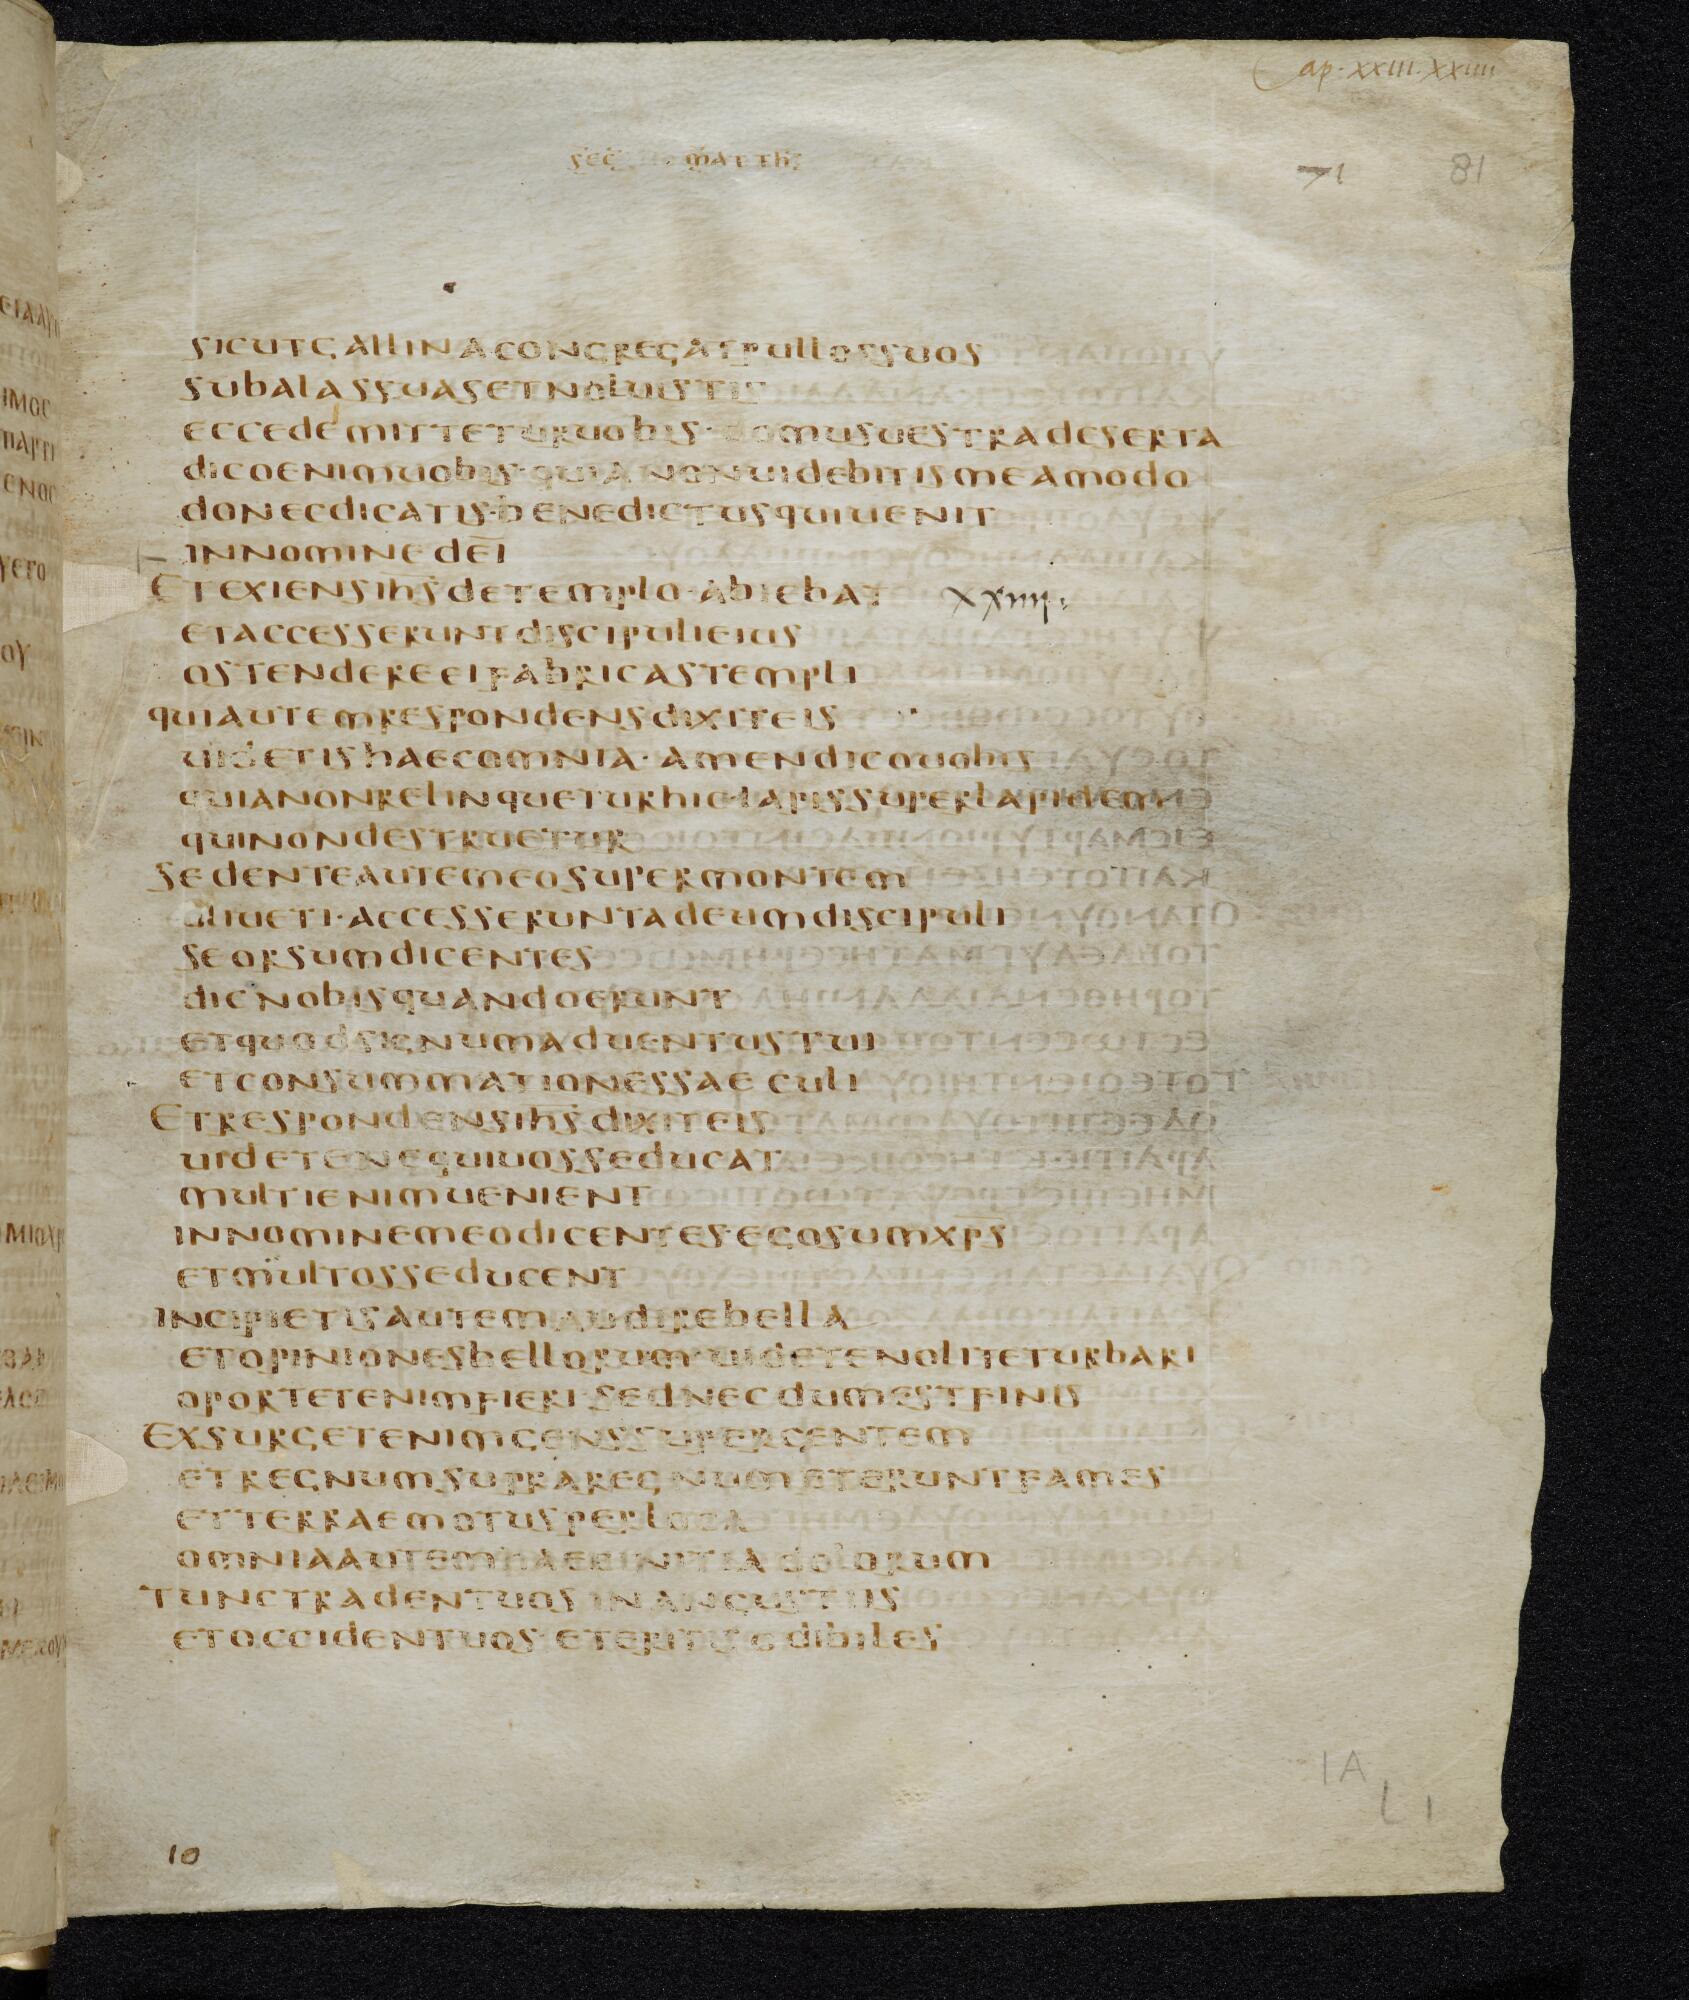 Cap. XXIII. XXIIII
sec matth
71 81
sicut gallina congregat pullos suos
sub alas suas et noluistis
ecce demittetur uobis · domus uestra deserta
dico enim uobis · quia non uidebitis me amodo
donec dicatis · benedictus qui uenit
in nomine dei
Et exiens ihs de templo · abiebat XXIIII
et accesserunt discipuli eius
ostendere ei fabricas templi
qui autem respondens dixit eis
uidetis haec omnia · amen dico uobis
quia non relinquetur hic · lapis super lapidem
qui non destruetur
Sedente autem eo super montem
oliueti · accesserunt ad eum discipuli
seorsum dicentes
dic nobis quando erunt
et quod signum aduentus tui
et consummationes saeculi
Et respondens ihs dixit eis
uidete ne qui uos seducat
multi enim uenient
in nomine meo dicentes · ego sum xps
et multos seducent
Incipietis autem audire bella
et opiniones bellorum · uidete nolite turbari
oportet enim fieri · sed necdum est finis
Exsurget enim gens super gentem
et regnum supra regnum et erunt fames
et terrae motus per loca
omnia autem haec initia dolorum
Tunc tradent uos in angustiis
et occident uos · et eritis odibiles
IA
L1
10